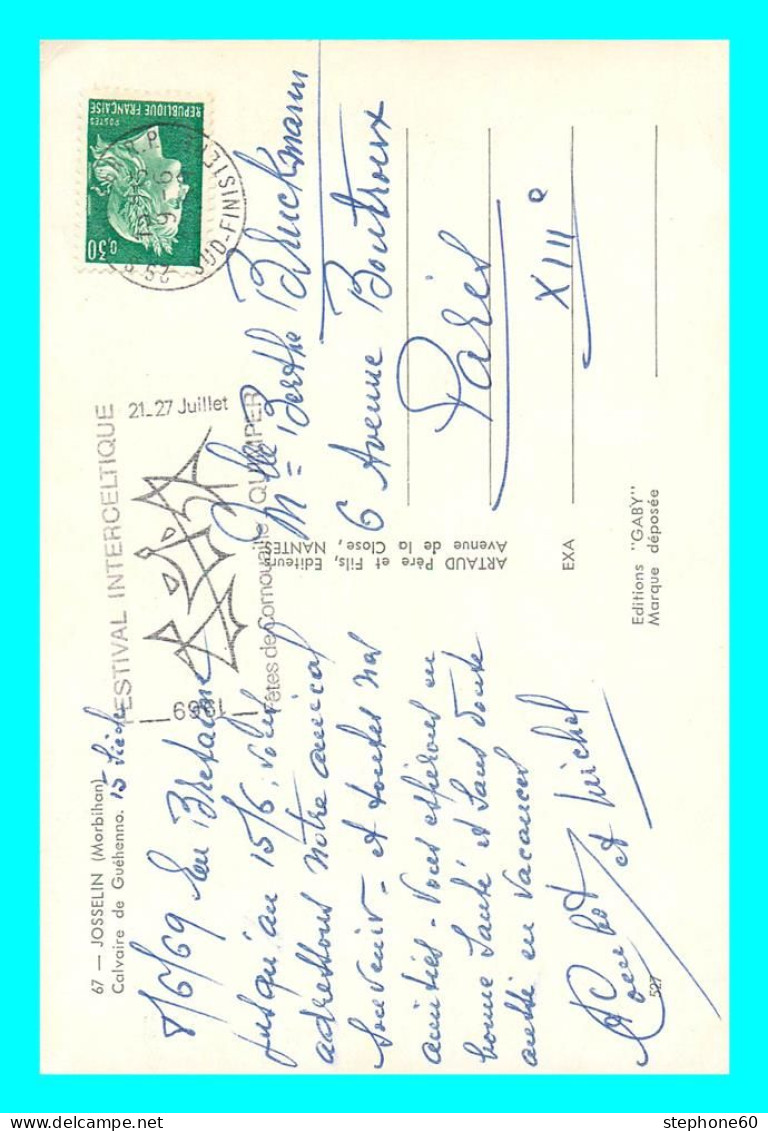 67 — JOSSELIN (Morbihan)
Calvaire de Guéhenno. 15 Siècle
8/6/69 en Bretagne
jusqu'au 15/6. vous
adressons notre amical
souvenir - et toutes nos
amitiés - Vous espérons en
bonne santé et sans doute
aussi en vacances
et Michel
527
FESTIVAL INTERCELTIQUE
21_27 Juillet
1969
Fêtes de Cornouaille QUIMPER
REPUBLIQUE FRANÇAISE
POSTES
0,30
SUD-FINISTERE
Mlle Berthe Bruckmann
6 Avenue Boutroux
Paris
XIIIe
ARTAUD Père et Fils, Editeurs
Avenue de la Close, NANTES
EXA
Editions "GABY"
Marque déposée
stephone60